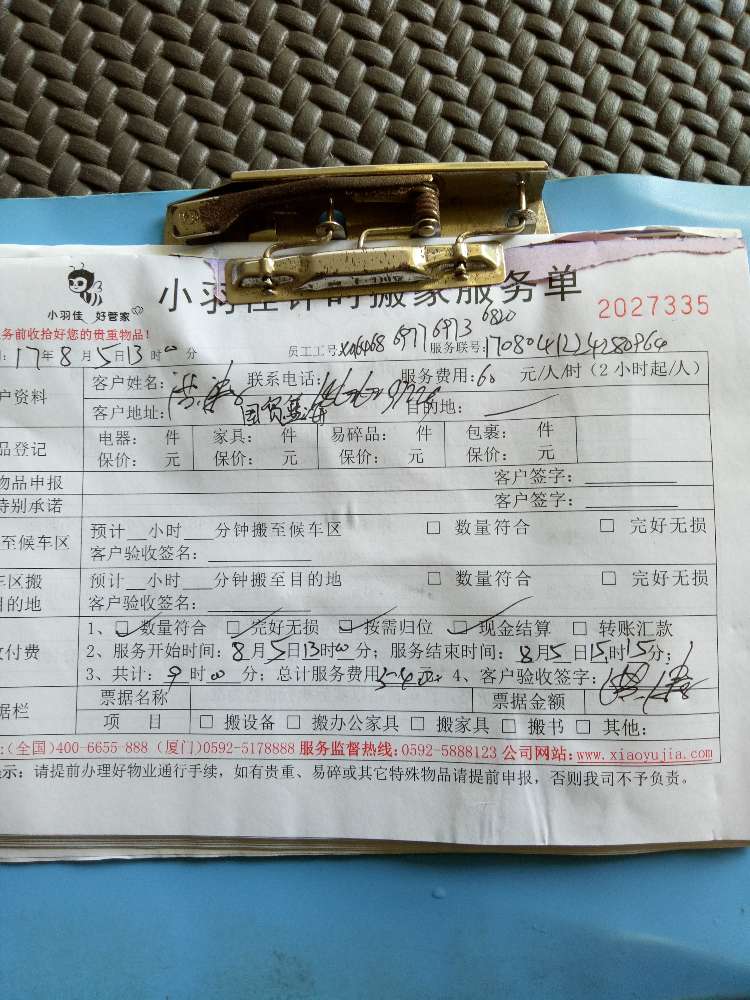 小羽佳 好管家
小羽佳计时搬家服务单
2027335
务前收拾好您的贵重物品!
17年8月5日13时00分 员工工号: 6977 6973 6820 服务联号:
户资料 客户姓名: 联系电话: 服务费用:60 元/人/时(2小时起/人)
客户地址: 目的地:
品登记 电器: 件 家具: 件 易碎品: 件 包裹: 件
保价: 元 保价: 元 保价: 元 保价: 元
物品申报 客户签字:
特别承诺 客户签字:
至候车区 预计__小时___分钟搬至候车区 □ 数量符合 □ 完好无损
客户验收签名:
车区搬 预计__小时___分钟搬至目的地 □ 数量符合 □ 完好无损
目的地 客户验收签名:
付费 1、☑数量符合 ☑完好无损 ☑按需归位 ☑现金结算 □ 转账汇款
2、服务开始时间:8月5日13时00分; 服务结束时间:8月5日15时15分;
3、共计:9时00分; 总计服务费用 元; 4、客户验收签字:
据栏 票据名称 票据金额
项 目 □ 搬设备 □ 搬办公家具 □ 搬家具 □ 搬书 □ 其他:
:(全国)400-6655-888 (厦门)0592-5178888 服务监督热线:0592-5888123 公司网站:www.xiaoyujia.com
示: 请提前办理好物业通行手续, 如有贵重、易碎或其它特殊物品请提前申报, 否则我司不予负责。